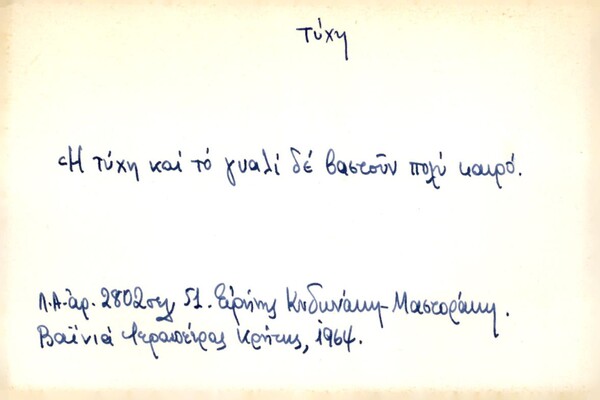 τύχη
Ἡ τύχη καί τό γυαλί δέ βαστοῦν πολύ καιρό.
Λ.Α. ἀρ. 2802 σελ 51. Εἰρήνης Κηδωνάκη-Μαστοράκη.
Βαϊνιά Ἱεραπέτρας Κρήτης, 1964.